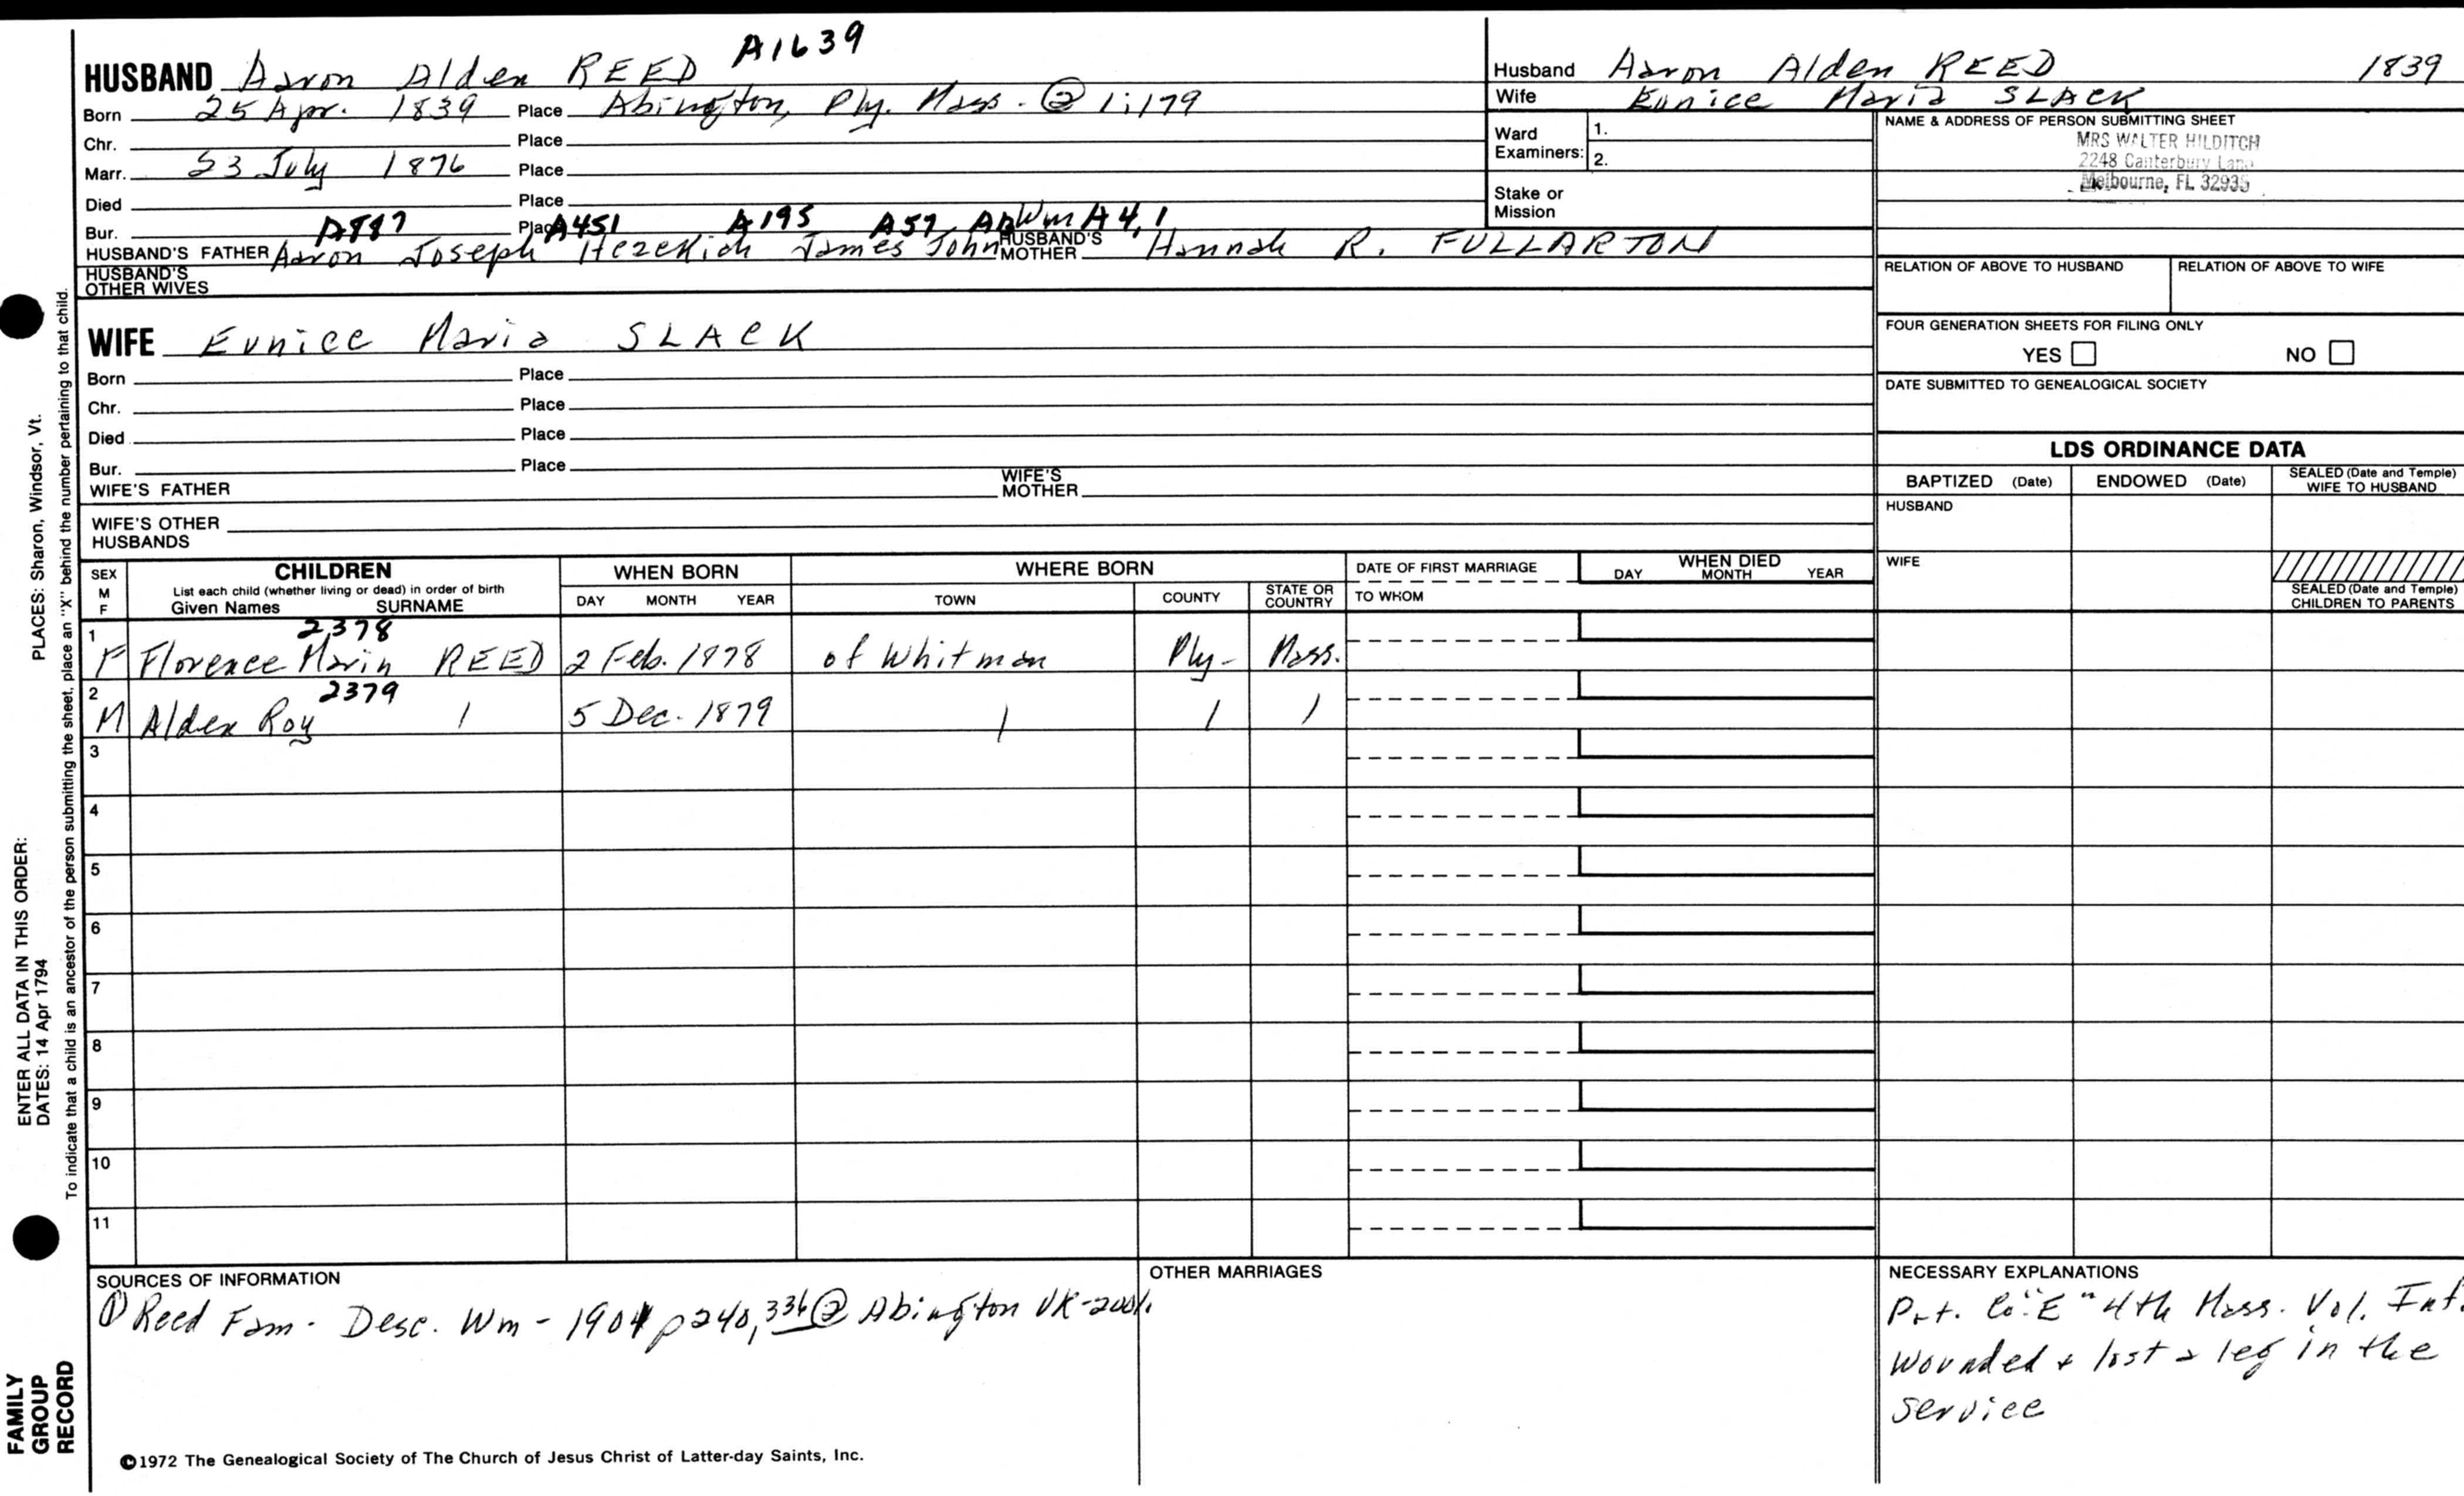 HUSBAND Aaron Alden REED A1639
Born 25 Apr. 1839 Place Abington, Ply. Mass. @ 1:179
Chr. Place
Marr. 23 July 1876 Place
Died Place
Bur. Place
A887 A451 A195 A57 A12 Wm A4,1
HUSBAND'S FATHER Aaron Joseph Hezekiah James John HUSBAND'S MOTHER Hannah R. FULLARTON
HUSBAND'S OTHER WIVES
WIFE Eunice Maria SLACK
Born Place
Chr. Place
Died Place
Bur. Place
WIFE'S FATHER WIFE'S MOTHER
WIFE'S OTHER HUSBANDS
Husband Aaron Alden REED 1839
Wife Eunice Maria SLACK
Ward Examiners: 1.
2.
Stake or Mission
NAME & ADDRESS OF PERSON SUBMITTING SHEET
MRS WALTER HILDITCH
2248 Canterbury Lane
Melbourne, FL 32935
RELATION OF ABOVE TO HUSBAND RELATION OF ABOVE TO WIFE
FOUR GENERATION SHEETS FOR FILING ONLY
YES NO
DATE SUBMITTED TO GENEALOGICAL SOCIETY
LDS ORDINANCE DATA
BAPTIZED (Date) ENDOWED (Date) SEALED (Date and Temple) WIFE TO HUSBAND
HUSBAND
WIFE
SEALED (Date and Temple) CHILDREN TO PARENTS
SEX M F
CHILDREN
List each child (whether living or dead) in order of birth
Given Names SURNAME
WHEN BORN
DAY MONTH YEAR
WHERE BORN
TOWN COUNTY STATE OR COUNTRY
DATE OF FIRST MARRIAGE
TO WHOM
WHEN DIED
DAY MONTH YEAR
2378
1 F Florence Marin REED 2 Feb. 1878 of Whitman Ply- Mass.
2379
2 M Alden Roy 1 5 Dec. 1879 1 1 1
3
4
5
6
7
8
9
10
11
SOURCES OF INFORMATION
① Reed Fam. Desc. Wm - 1901 p 240, 336 ② Abington VR-200
OTHER MARRIAGES
NECESSARY EXPLANATIONS
Pvt. Co. "E" 4th Mass. Vol. Inf.
Wounded & lost a leg in the
service
©1972 The Genealogical Society of The Church of Jesus Christ of Latter-day Saints, Inc.
PLACES: Sharon, Windsor, Vt.
To indicate that a child is an ancestor of the person submitting the sheet, place an "X" behind the number pertaining to that child.
ENTER ALL DATA IN THIS ORDER:
DATES: 14 Apr 1794
FAMILY
GROUP
RECORD